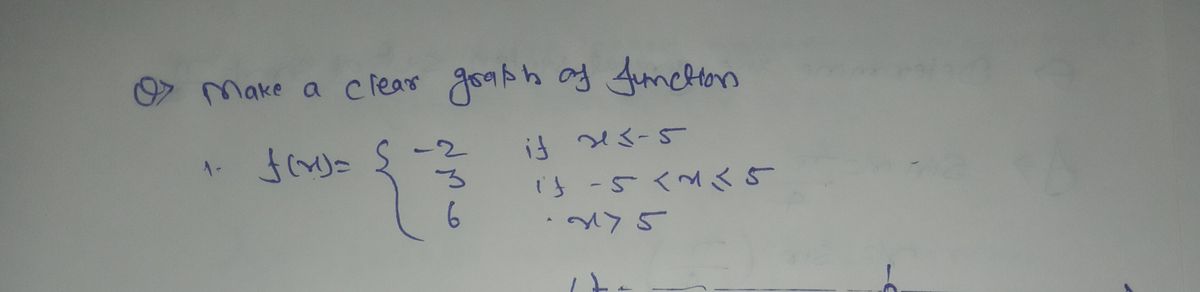 Q> Make a clear graph of function
1. f(x)= { -2 if x ≤ -5
3 if -5 < x ≤ 5
6 . x > 5